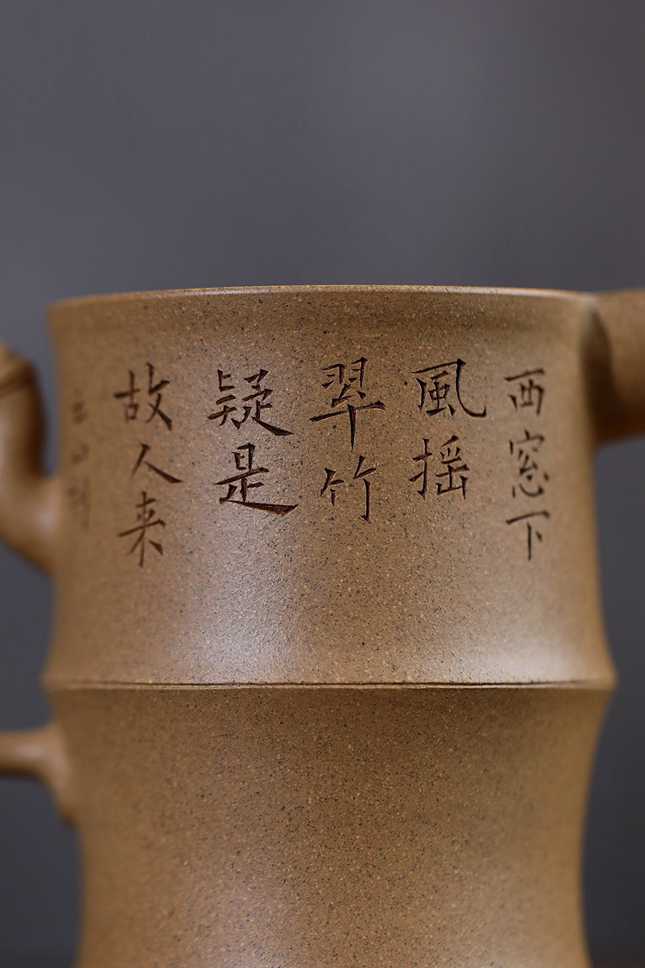 西窓下
風摇
翠竹
疑是
故人来